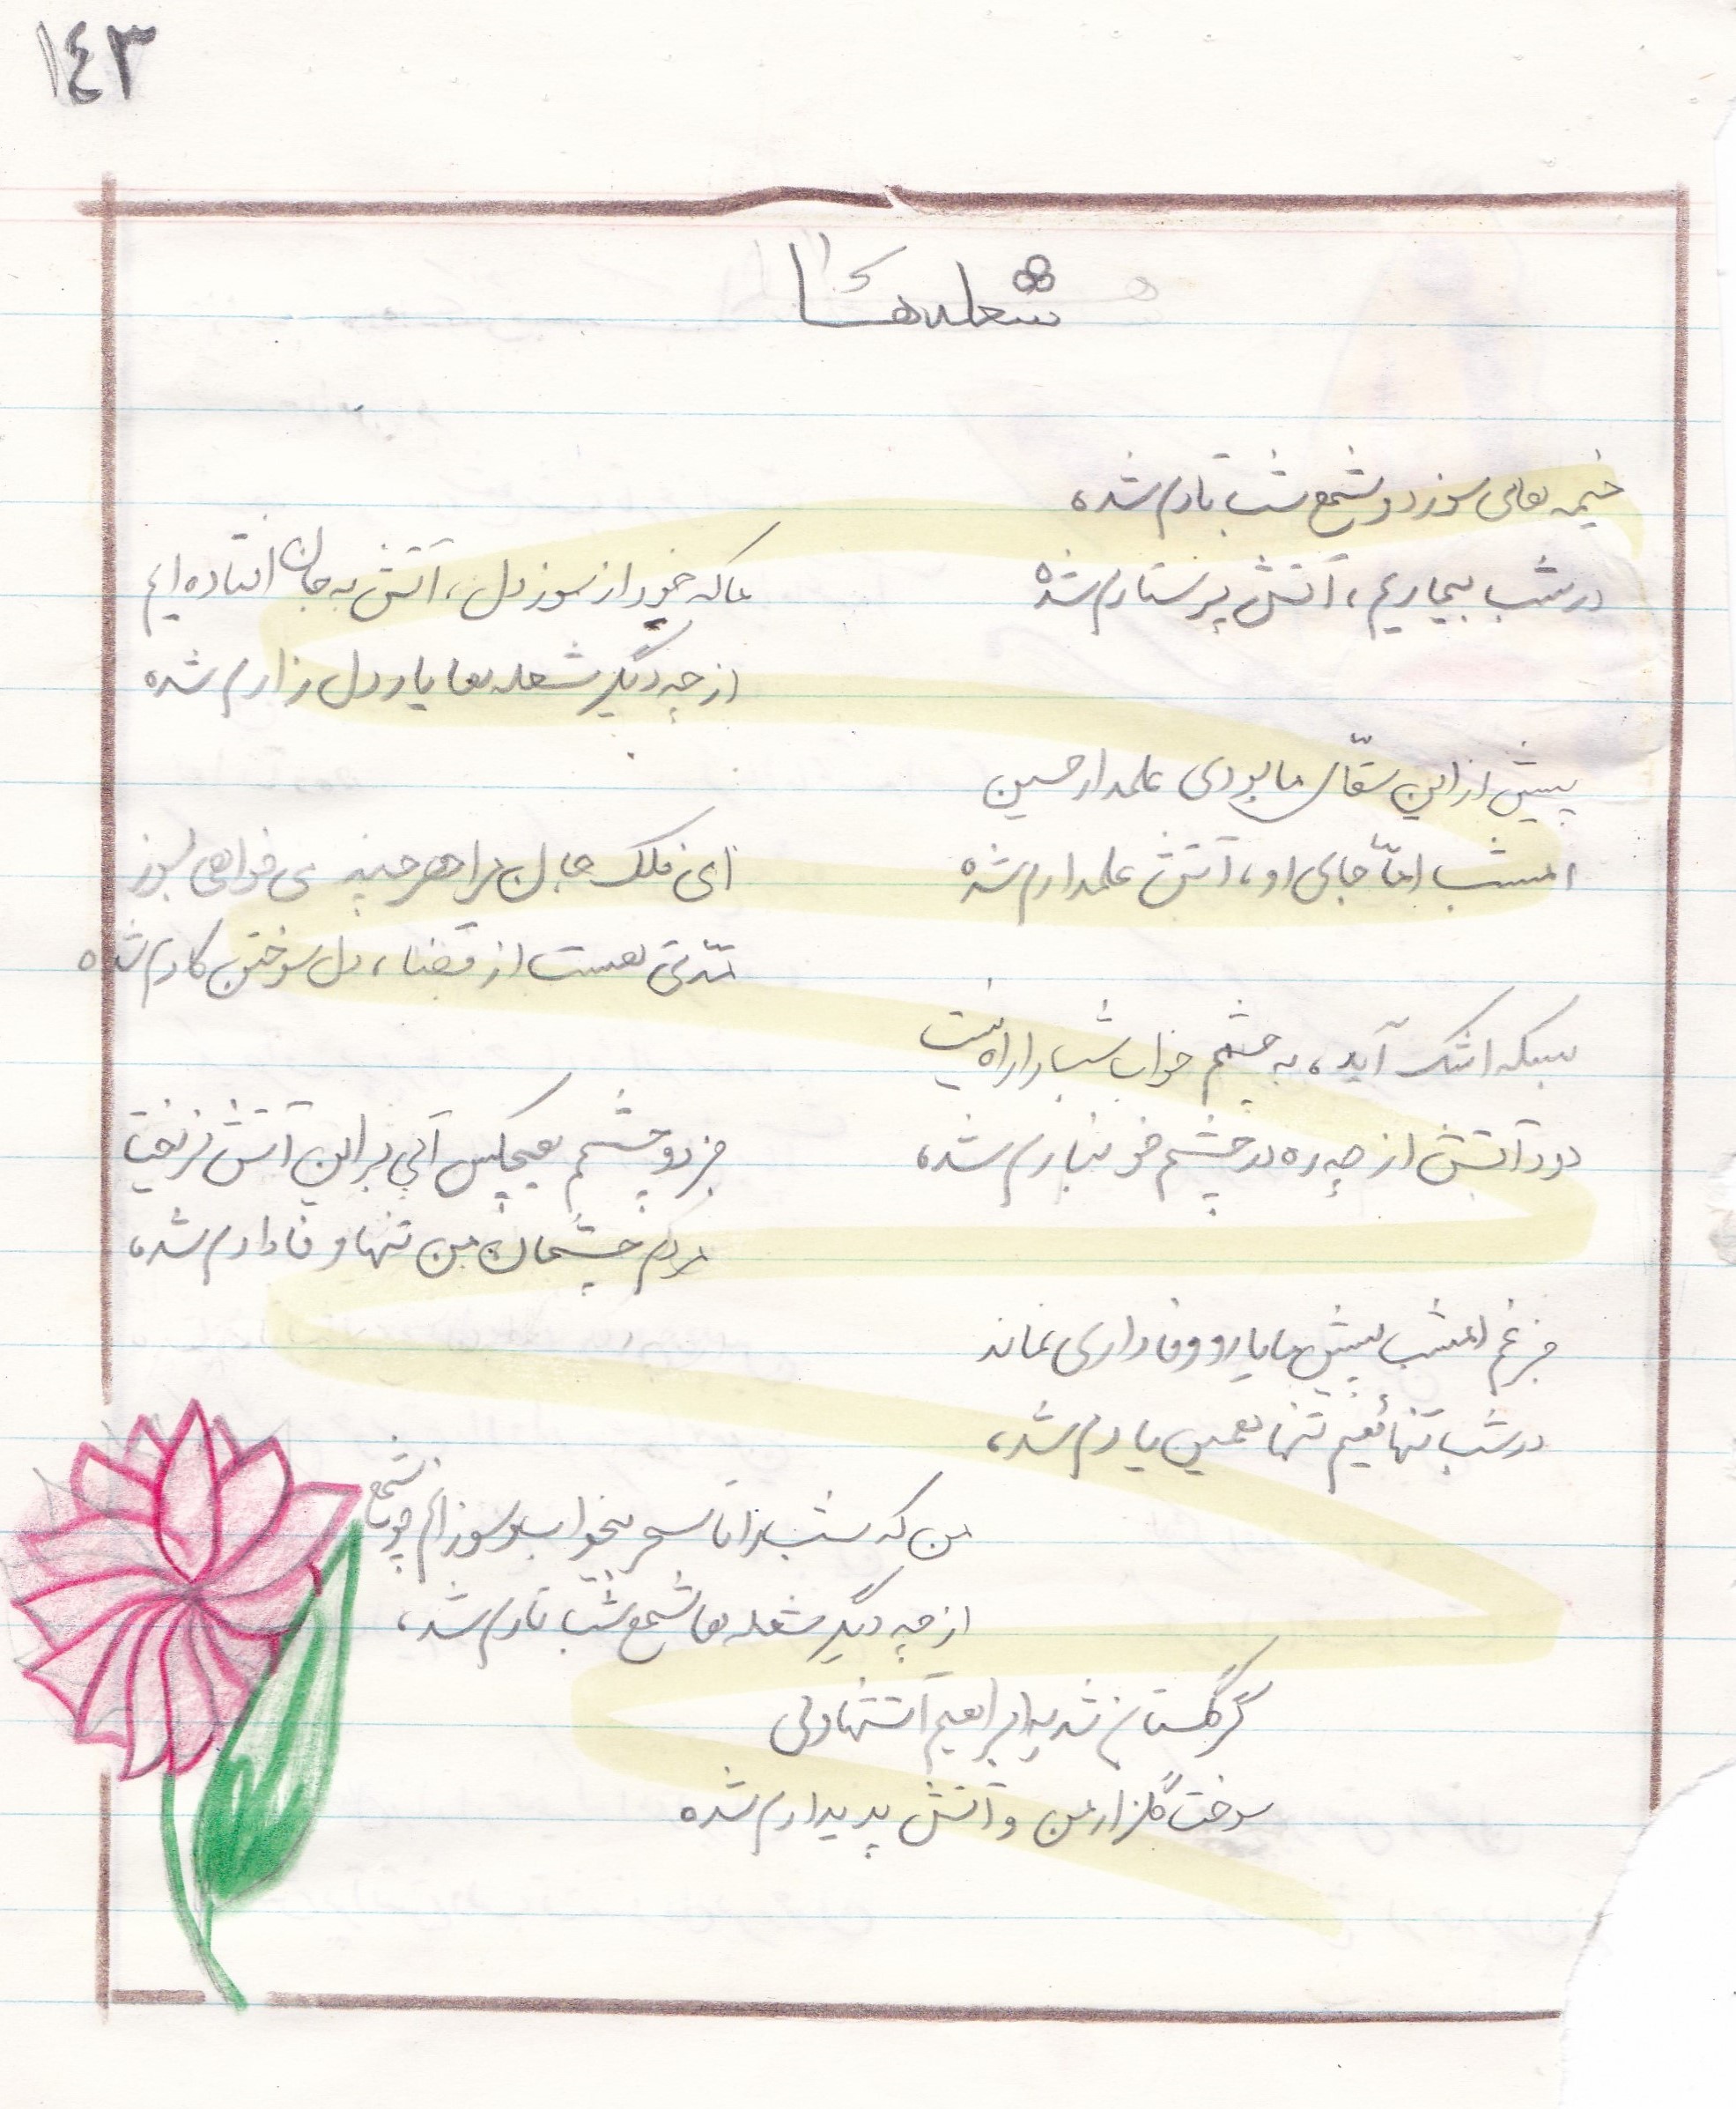 ١٤٣
شعله‌ها
خیمه‌های سوزد و شمع شب تارم شده
در شب بیماریم، آتش پرستارم شده
ما که خود از سوز دل، آتش به جان افتاده‌ایم
از چه دیگر شعله‌ها یار دل زارم شده
پیش از این سقّای ما بودی علمدار حسین
امشب امّا جای او، آتش علمدارم شده
ای فلک جان مرا هر چند می‌خواهی بسوز
مدّتی هست از قضا، دل سوختن کارم شده
بسکه اشک آید، به چشم خواب شب را راه نیست
دود آتش از چه ره در چشم خونبارم شده
جز دو چشمم هیچکس آبی بر این آتش نریخت
مردم چشمان من تنها وفادارم شده
جز غم امشب پیش ما یار وفاداری نماند
در شب تنهائیم تنها همین یارم شده
من که شب را تا سحر بیخواب و سوزانم چو شمع
از چه دیگر شعله‌ها شمع شب تارم شده
گر گلستان شد به ابراهیم آتشها ولی
سوخت گلزار من و آتش پدیدارم شده